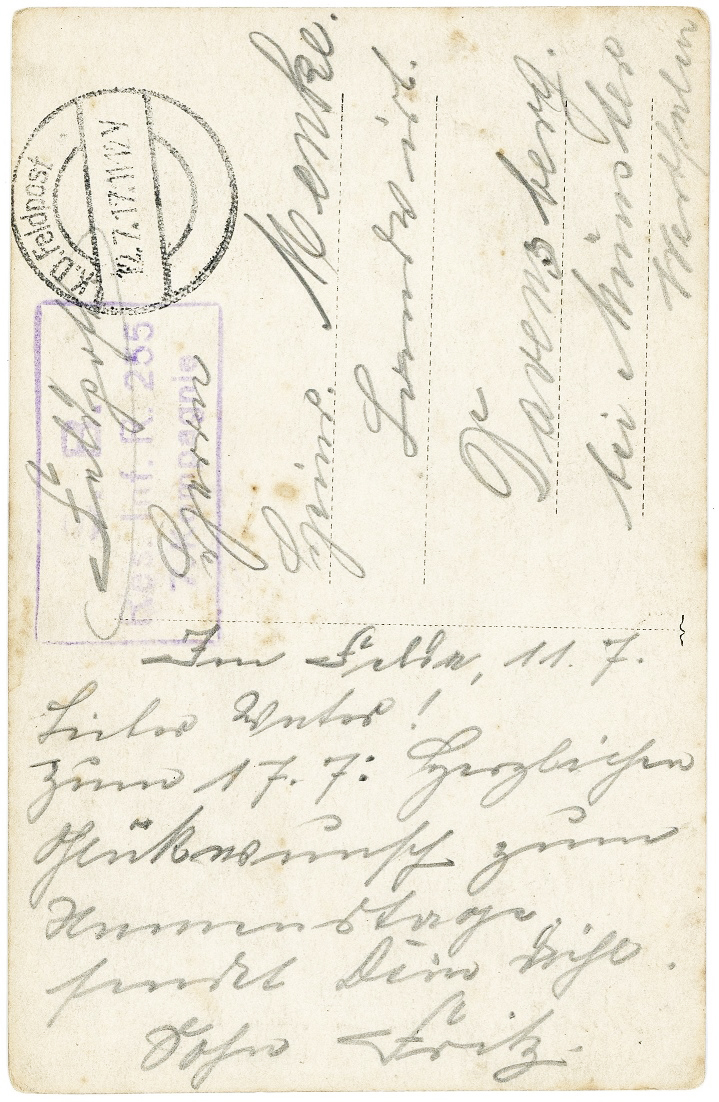 K.D. Feldpost
12.7.17. 11-12 V
S. B.
Res. Inf. R. 255
7. Kompagnie
Feldpost
Herrn
Heinr. Menke.
Landwirt.
Davensberg.
bei Münster
Westfalen
Im Felde, 11. 7.
Lieber Vater!
Zum 17. 7: Herzlichen
Glückwunsch zum
Namenstage.
sendet Dein
Sohn Fritz.